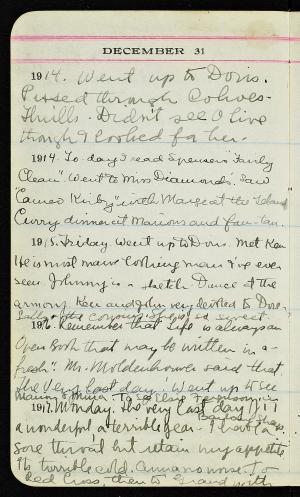 DECEMBER 31
1914. Went up to Doris.
Passed through Cohoes-
Thrills. Didn't see Olive
though I looked for her.
1914. To-day I read Spensers "Fairly
Clean" Went to Miss Diamonds'. Saw
"Cameo Kirby" with Marge at the
Curry dinner at Marions and fan-tan.
1915. Friday Went up to Doris. Met Ken
He is most man looking man I've ever
seen Johnny is a sketch Dance at the
armory. Ken and John very devoted to Doris
Sally & the
1916. Remember that "Life is always an
Open Book that may be written in a-
fresh." Mr. Moldenhower said that.
The Very last day! Went up to see
Marion &
1917. Monday. The very last day!!!!
a wonderful, a terrible year. I have a
sore throat but retain my appetite
It's terrible cold. Anna no worse. To
Red Cross, then to Grand with